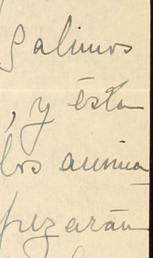 Salimos
, y ésta
los anima
pezarán